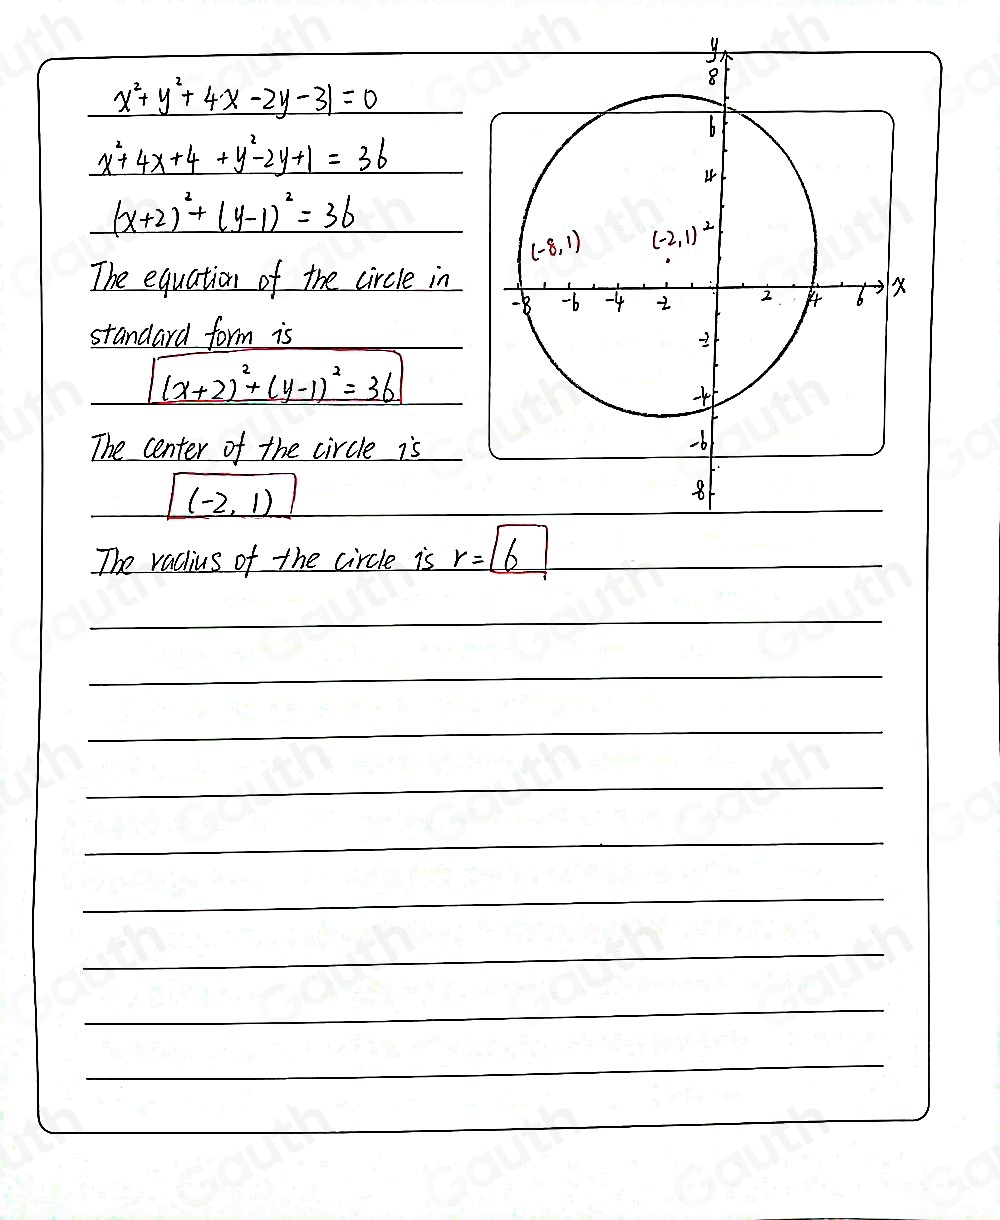 x²+y²+4x-2y-31=0
x²+4x+4+y²-2y+1=36
(x+2)²+(y-1)²=36
The equation of the circle in
standard form is
(x+2)²+(y-1)²=36
The center of the circle is
(-2, 1)
The radius of the circle is r=6
y
8
6
4
2
(-8,1)
(-2,1)
-8 -6 -4 -2 2 4 6 x
-2
-4
-6
-8
Gauth